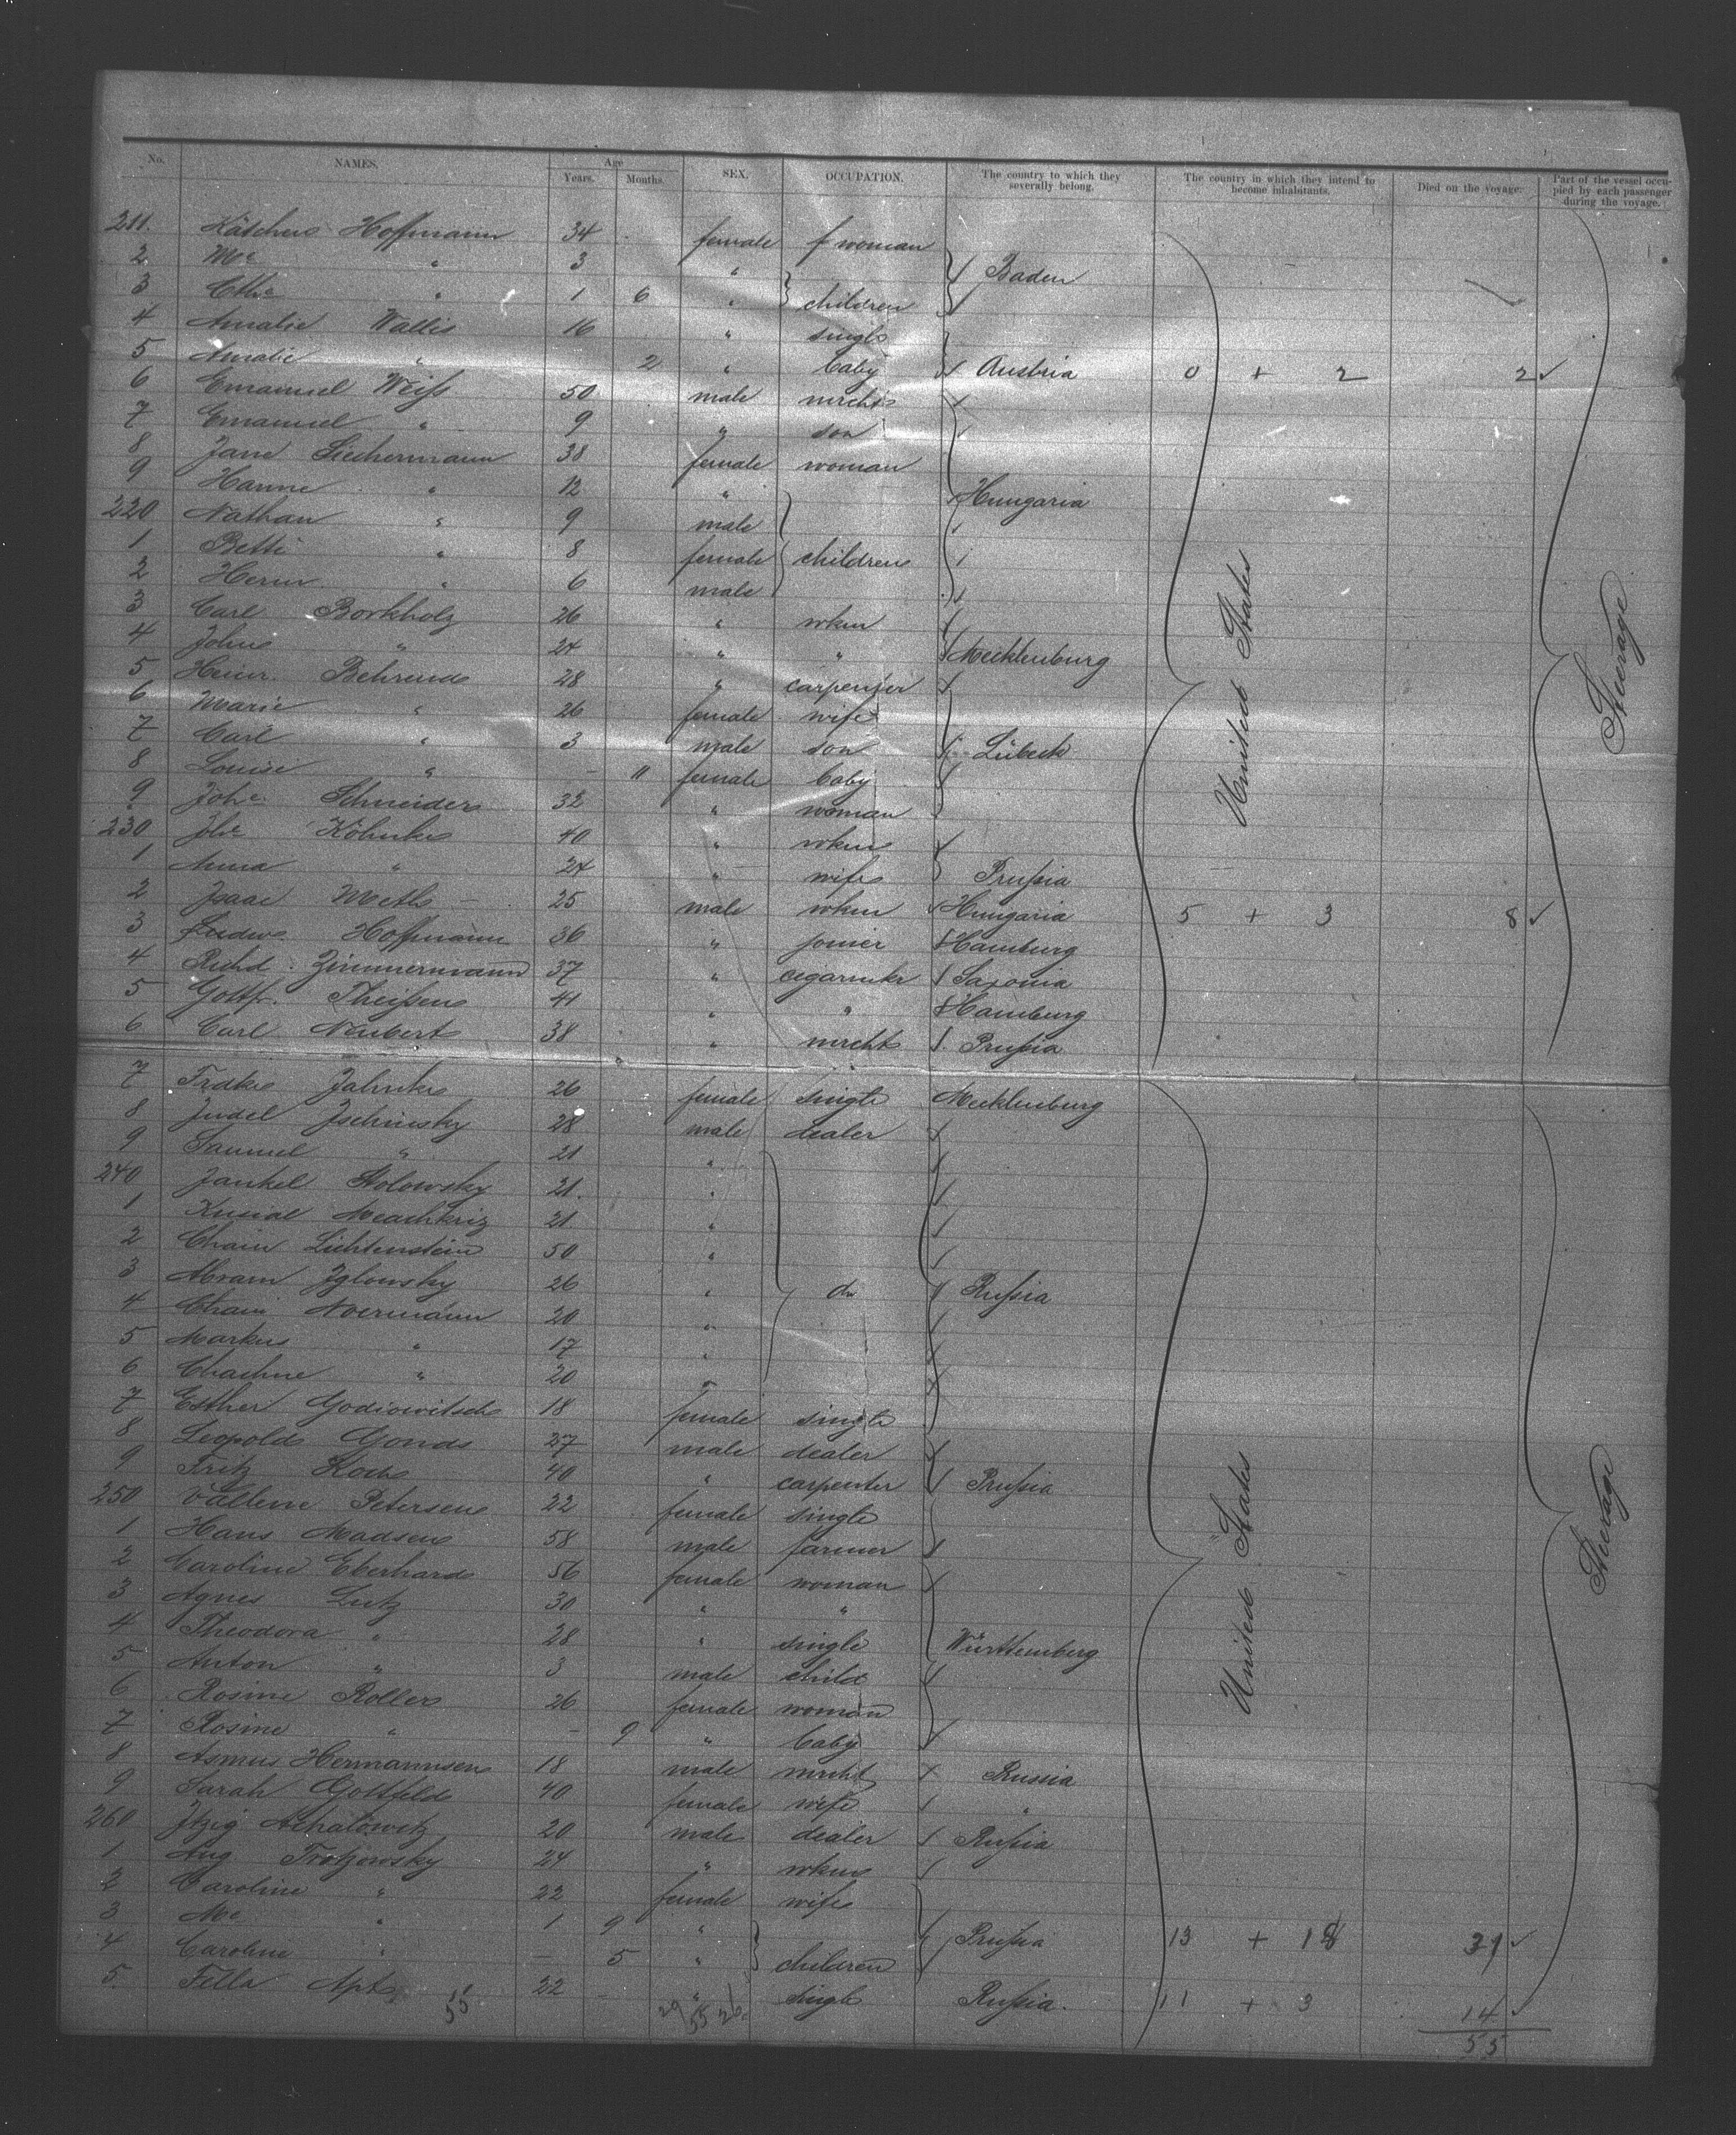 No. NAMES. Age Years. Months. SEX. OCCUPATION. The country to which they severally belong. The country in which they intend to become inhabitants. Died on the voyage. Part of the vessel occupied by each passenger during the voyage.
211. Hoffmann 34 female f woman
2 Me " 3 "
Baden
3 " 1 6 " children
4 Amalie Wallis 16 " single
5 Amalie " 2 " baby Austria 0 + 2 2
6 Emanuel Weiß 50 male mrcht
7 Emanuel " 9 " son
8 Jane Liechermann 38 female woman
9 Hanne " 12 " Hungaria
220 Nathan " 9 male
1 Betti " 8 female children
2 Herm " 6 male
3 Carl Borkholz 26 " wkm
4 Johns " 24 " " Mecklenburg
5 Heinr. Behrend 28 " carpenter
6 Marie " 26 female wife
7 Carl " 3 male son Lübeck
8 Louise " - 11 female baby
9 Johe Schneider 32 " woman
230 Jhe Köhnke 40 " wkm
1 Anna " 24 " wife Prußia
2 Isaac Meth 25 male wkm Hungaria 5 + 3 8
3 Ludw. Hoffmann 36 " joiner Hamburg
4 Richd. Zimmermann 37 " cigarmkr Saxonia
5 Gottfr. Theißen 41 " " Hamburg
6 Carl Naubert 38 " mrcht Prußia
United States
Steerage
7 Frdke Jahnke 26 female single Mecklenburg
8 Judel Jschinsky 28 male dealer
9 Samuel " 21 "
240 Jankel Stolowsky 21. "
1 21 "
2 Chain Lichtenstein 50 "
3 Abram Jglowsky 26 " do Rußia
4 Chain Noermann 20 "
5 Markus " 17 "
6 Chachne " 20 "
7 Esther Godiowitsch 18 female single
8 Leopold Gonds 27 male dealer
9 Fritz Koch 40 " carpenter Prußia
250 Petersen 22 female single
1 Hans Madsen 58 male farmer
2 Caroline Eberhard 56 female woman
3 Agnes Lutz 30 " "
4 Theodora " 28 " single Württemberg
5 Anton " 3 male child
6 Rosine Roller 26 female woman
7 Rosine " - 9 " baby
8 Asmus Hermannsen 18 male mrcht Russia
9 Sarah Gottfeld 40 female wife "
260 Itzig 20 male dealer Rußia
1 Aug Trotzowsky 24 " wkm
2 Caroline " 22 female wife
3 Me " 1 9 " Prußia 13 + 18 31
4 Caroline " - 5 " children
5. Fella Apt 22 - " single Rußia. 11 + 3 14
55 29 55 26 55
United States
Steerage